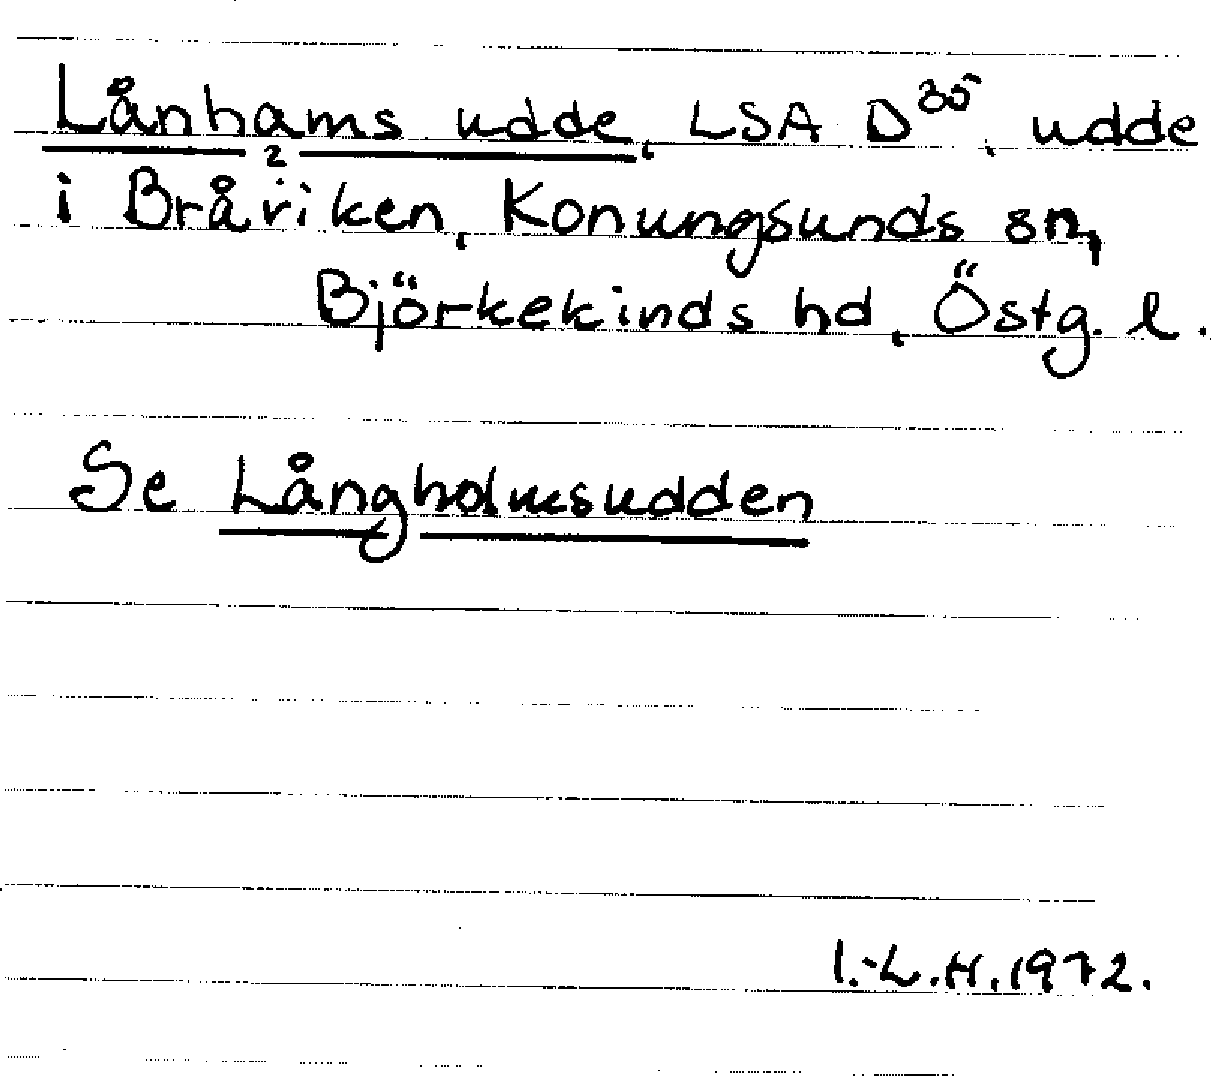 Lånhams udde, LSA D³⁵, udde
i Bråviken, Konungsunds sn,
Björkekinds hd, Östg. l.
Se Långholmsudden
I.-L.H. 1972.